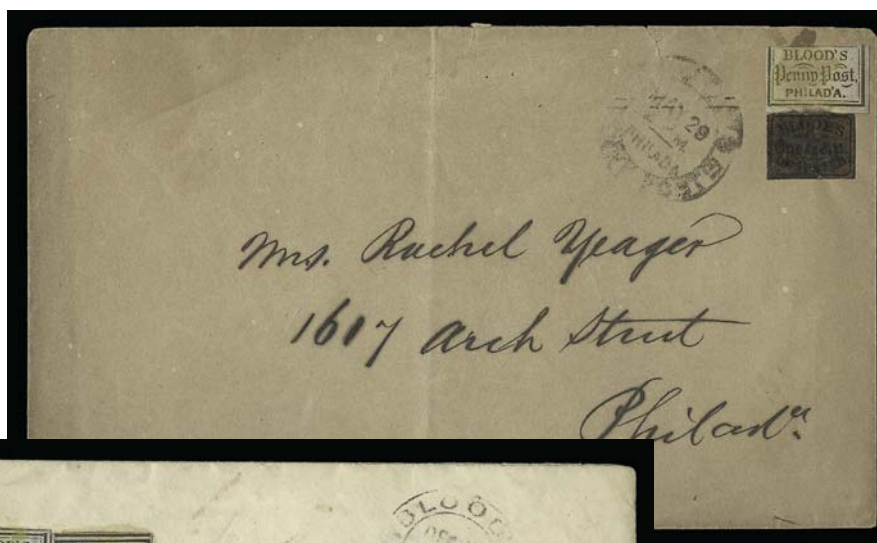 BLOOD'S
Penny Post,
PHILAD'A.
BLOOD'S
29
PHILADA
Mrs. Rachel Yeager
1617 Arch Street
Philada.
BLOOD
DEC